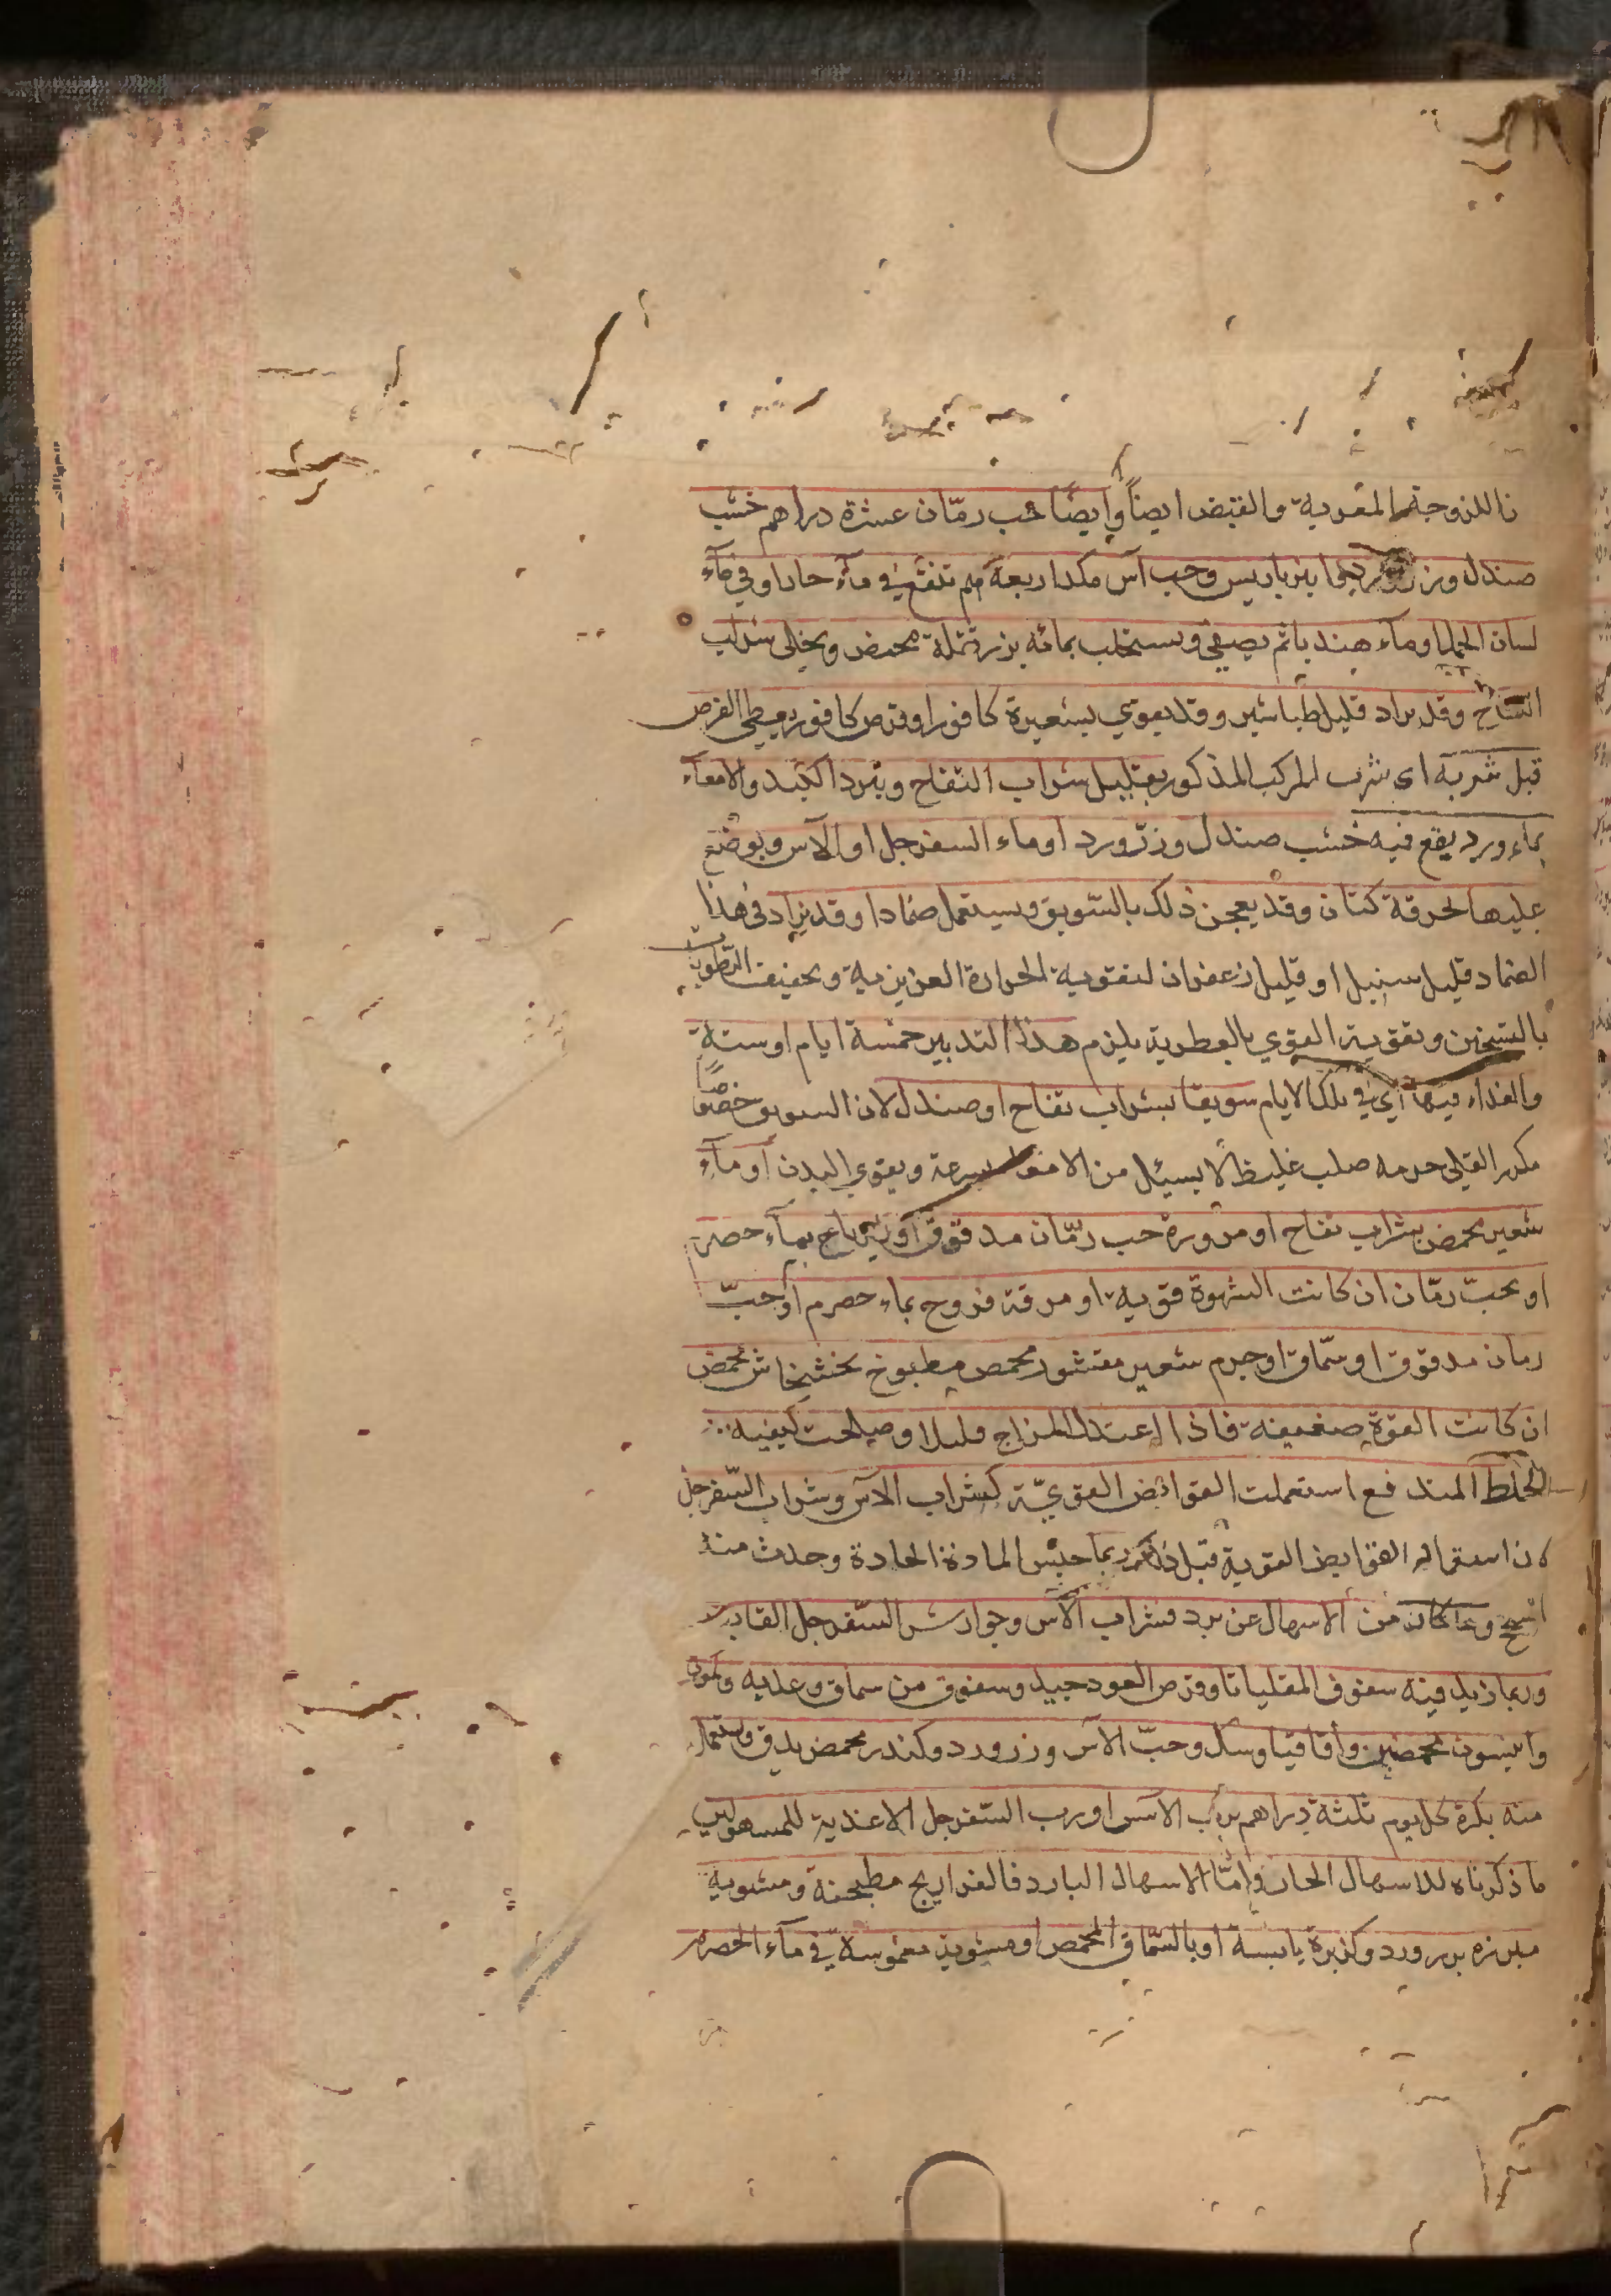 نا للزوجة المغرية والقبض ايضاً وايضاً حب رمّان عشرة دراهم خشب
صندل وزر ورد وانبرباريس وحب آس مكد اربعة مم تنقع في ماء حار او في مآء
لسان الحمل او ماء هندبا ثم يصفى ويستحلب بمائه بزر بقلة محمض ويحلى بشراب
التفاح وقد يزاد قليل طباشير وقد يقوي بشعيرة كافور او قرص كافور ويعطى القرص
قبل شربه اى شرب المركب المذكور بقليل شراب التفاح ويبرد الكبد والامعآء
بماء ورد يقع فيه خشب صندل وزرّ ورد او ماء السفرجل او الآس ويوضع
عليها بخرقة كتان وقد يعجن ذلك بالسّويق ويستعمل ضمادا وقد يزاد في هذا
الضماد قليل سنبل او قليل زعفران لتقوية الحرارة الغريزية وتخفيف الرّطوبة
بالتسخين وتقوية القوي بالعطرية يلزم هذا التدبير خمسة ايام او ستة
والغذاء فيها اي في تلك الايام سويقا بشراب تفاح او صندل لان السويق خصوصًا
مكرر القلى جرمه صلب غليظ لا يسيل من الامعا بسرعة ويقوي البدن أو مآء
شعير محمض بشراب تفاح او مزورة حب رمّان مدقوق او زيرباج بمآء حصرم
او بحبّ رمّان ان كانت الشهوة قوية او مرقة فروج بماء حصرم او حبّ
رمان مدقوق او سمّاق او جرم شعير مقشور محمص مطبوخ بخشخاش محمض
ان كانت القوة ضعيفة فاذا اعتدل المزاج قليلا وصلحت كيفية
الخلط المندفع استعملت القوابض القويّة كشراب الآس وشراب السّفرجل
لان استعمال القوابض القوية قبل ذلك ربما حبس المادة الحادة وحدث منه
السحج وما كان من الاسهال عن برد فشراب الآس وجوارش السّفرجل القابض
وربما زيد فيه سفوف المقلياثا وقرص العود جيد وسفوف من سماق وعلية وكمون
وانيسون محمصين واقاقيا وسك وحبّ الآس وزر ورد وكندر محمص يدق ويستعمل
منه بكرة كل يوم ثلثة دراهم برب الآس او رب السّفرجل الاغذية للمسهولين
ما ذكرناه للاسهال الحار وامّا الاسهال البارد فالفراريج مطجنة ومشوية
مبزرة بزر ورد وكزبرة يابسة او بالسّماق المحمص او مشوية مغموسة في مآء الحصرم